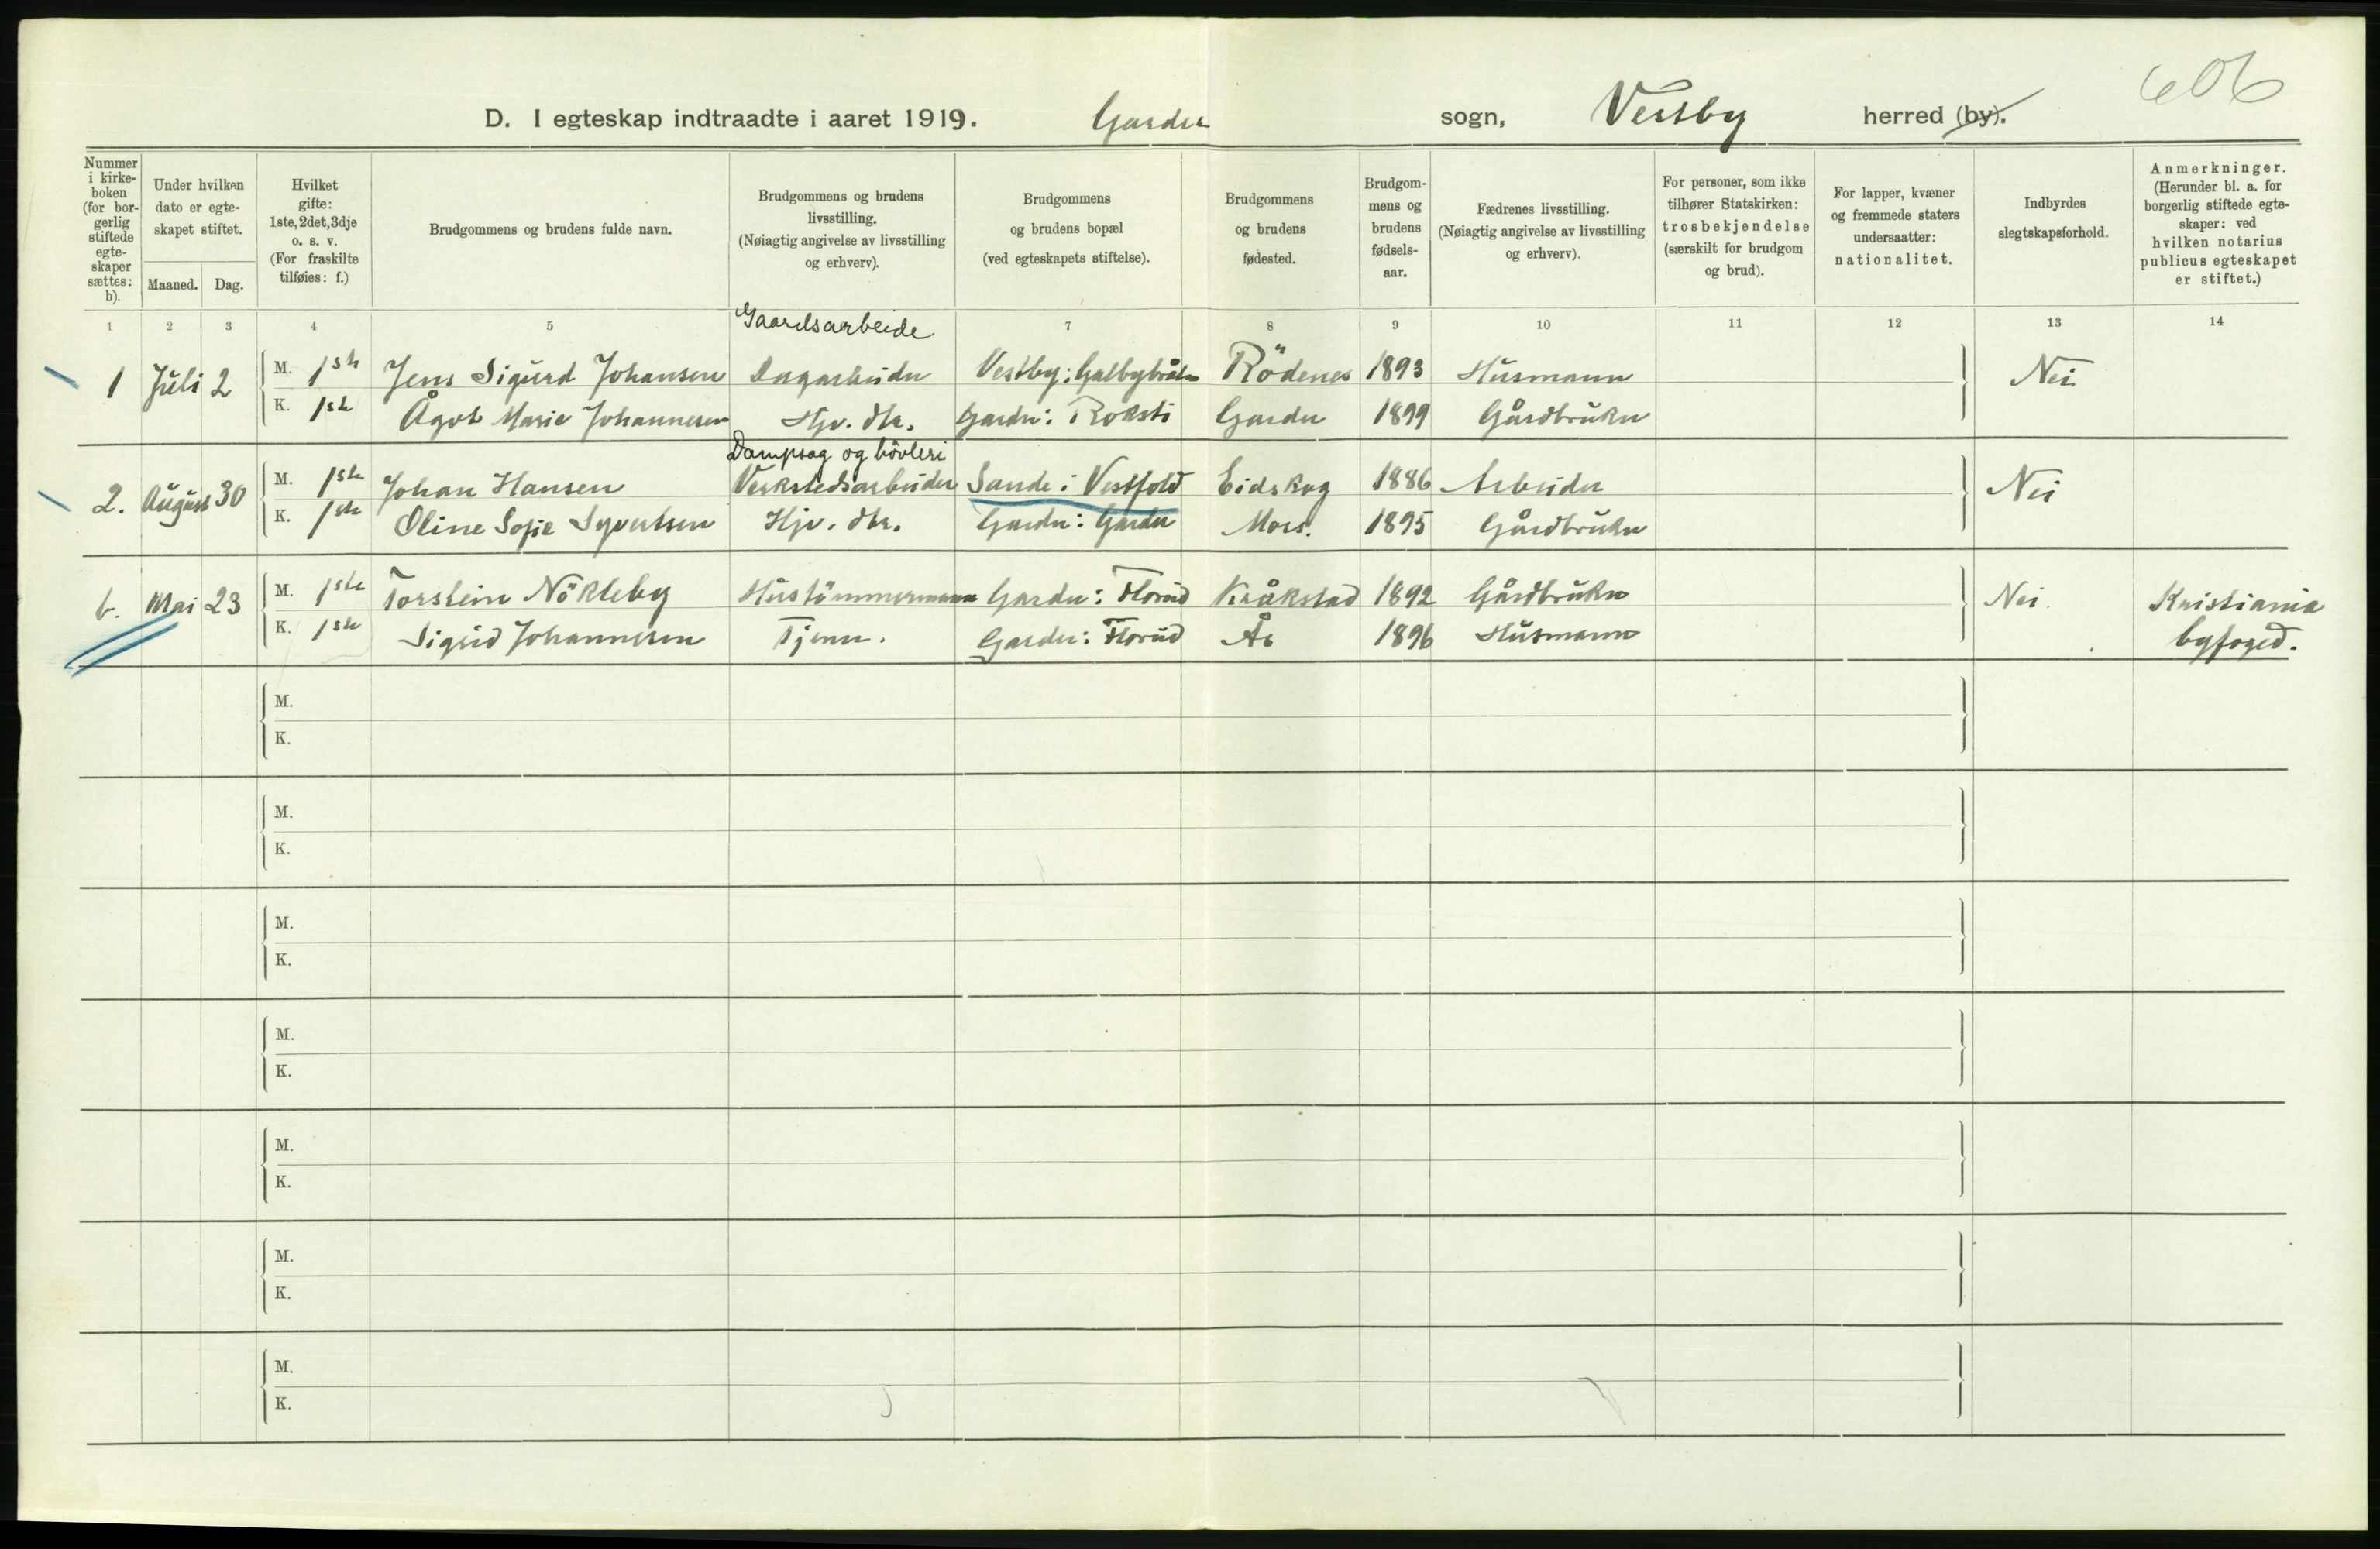 606
D. I egteskap indtraadte i aaret 1919. Garder sogn, Vestby herred (by).
Nummer i kirke-boken (for bor-gerlig stiftede egte-skaper sættes: b).
Under hvilken dato er egte-skapet stiftet.
Maaned. Dag.
Hvilket gifte: 1ste, 2det, 3dje o. s. v. (For fraskilte tilføies: f.)
Brudgommens og brudens fulde navn.
Brudgommens og brudens livsstilling. (Nøiagtig angivelse av livsstilling og erhverv).
Brudgommens og brudens bopæl (ved egteskapets stiftelse).
Brudgommens og brudens fødested.
Brudgom-mens og brudens fødsels-aar.
Fædrenes livsstilling. (Nøiagtig angivelse av livsstilling og erhverv).
For personer, som ikke tilhører Statskirken: trosbekjendelse (særskilt for brudgom og brud).
For lapper, kvæner og fremmede staters undersaatter: nationalitet.
Indbyrdes slegtskapsforhold.
Anmerkninger. (Herunder bl. a. for borgerlig stiftede egte-skaper: ved hvilken notarius publicus egteskapet er stiftet.)
1 2 3 4 5 7 8 9 10 11 12 13 14
Gaardsarbeide
1 Juli 2 M. 1ste Jens Sigurd Johansen Dagarbeider Vestby: Rödenes 1893 Husmann Nei
K. 1ste Ågot Marie Johannesen Hjv. dtr. Garder: Roksti Garder 1899 Gårdbruker
Dampsag og hövleri
2. August 30 M. 1ste Johan Hansen Verkstedsarbeider Sande i Vestfold Eidskog 1886 Arbeider Nei
K. 1ste Oline Sofie Syvertsen Hjv. dtr. Garder: Garder Moss. 1895 Gårdbruker
b. Mai 23 M. 1ste Torstein Nökleby Hustömmermann Garder: Florud Kråkstad 1892 Gårdbruker Nei. Kristiania
K. 1ste Sigrid Johannesen Tjener. Garder: Florud Ås 1896 Husmann byfoged.
M.
K.
M.
K.
M.
K.
M.
K.
M.
K.
M.
K.
M.
K.